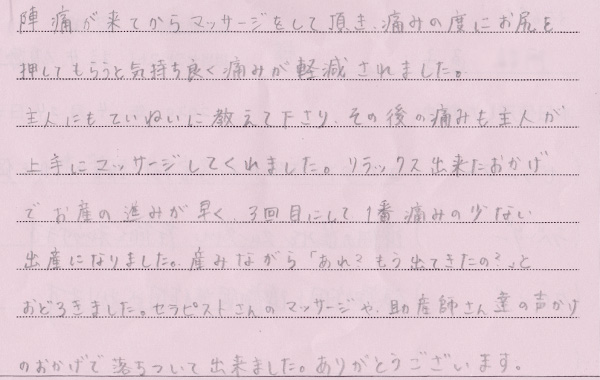 陣痛が来てからマッサージをして頂き、痛みの度にお尻を
押してもらうと気持ち良く痛みが軽減されました。
主人にもていねいに教えて下さり、その後の痛みも主人が
上手にマッサージしてくれました。リラックス出来たおかげ
でお産の進みが早く、3回目にして1番痛みの少ない
出産になりました。産みながら「あれ?もう出てきたの?」と
おどろきました。セラピストさんのマッサージや、助産師さん達の声かけ
のおかげで落ちついて出来ました。ありがとうございます。